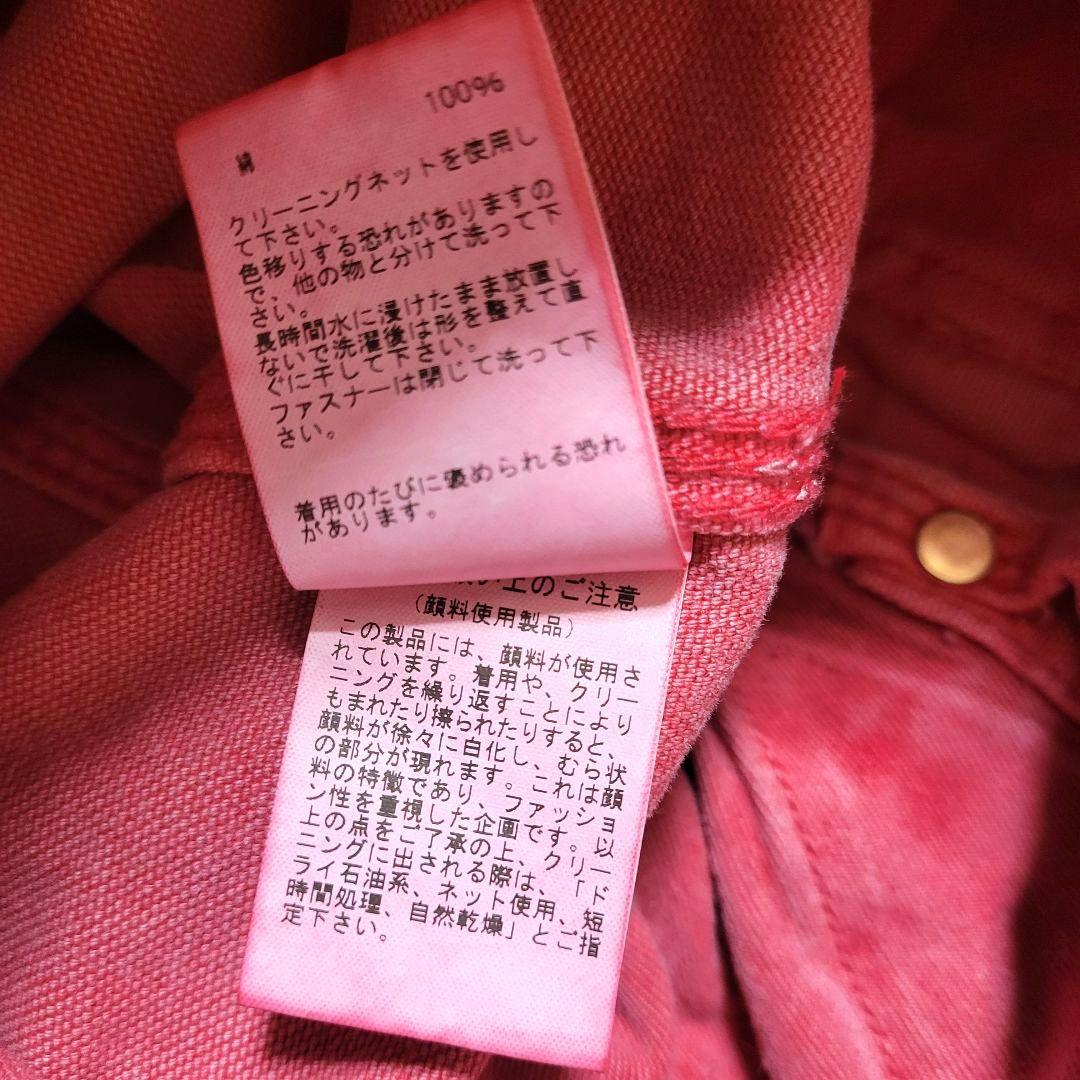 綿 100%
クリーニングネットを使用し
て下さい。
色移りする恐れがありますの
で、他の物と分けて洗って下
さい。
長時間水に浸けたまま放置し
ないで洗濯後は形を整えて直
ぐに干して下さい。
ファスナーは閉じて洗って下
さい。
着用のたびに褒められる恐れ
があります。
い上のご注意
(顔料使用製品)
この製品には、顔料が使用さ
れています。着用や、クリー
ニングを繰り返すことにより
もまれたり擦られたりすると、
顔料が徐々に白化し、むら状
の部分が現れます。これは顔
料の特徴であり、ファッショ
ン性を重視した企画です。以
上の点をご了承の上、クリー
ニングに出される際は、「ド
ライ石油系、ネット使用、短
時間処理、自然乾燥」とご指
定下さい。